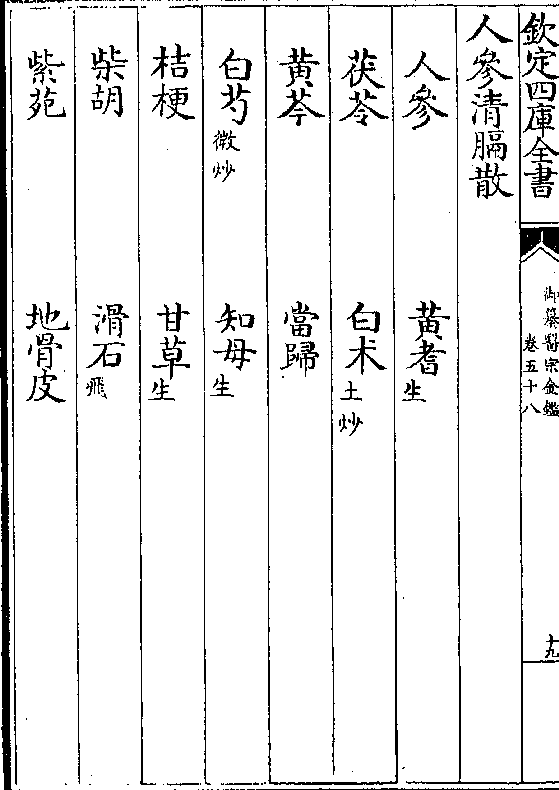 欽定四庫全書
御纂醫宗金鑑
卷五十八
十九
人參清膈散
人參 黃耆生
茯苓 白朮土炒
黃芩 當歸
白芍微炒 知母生
桔梗 甘草生
柴胡 滑石飛
紫菀 地骨皮